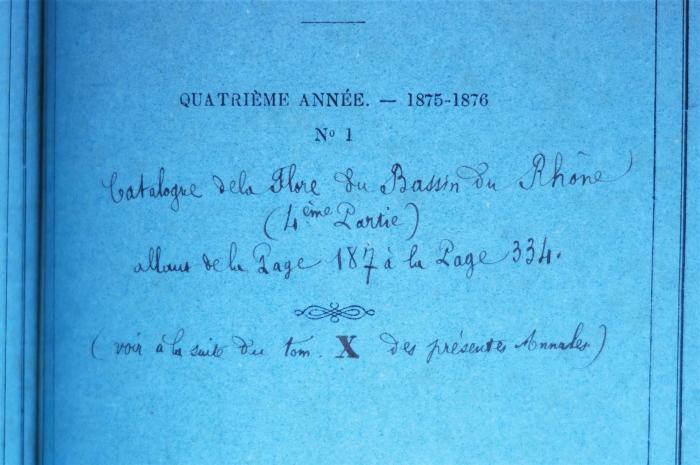 QUATRIÈME ANNÉE. — 1875-1876
Nº 1
Catalogue de la Flore du Bassin du Rhône
(4ème Partie)
allant de la Page 187 à la Page 334.
(voir à la suite du tom. X des présentes Annales)